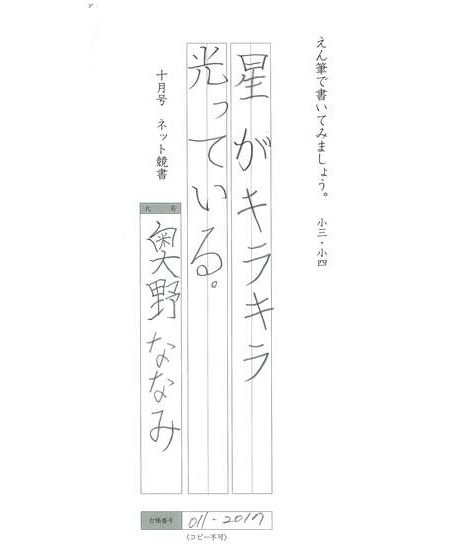 えん筆で書いてみましょう。 小三・小四
星がキラキラ
光っている。
十月号 ネット競書
氏名
奥野ななみ
台帳番号 011-2017
(コピー不可)